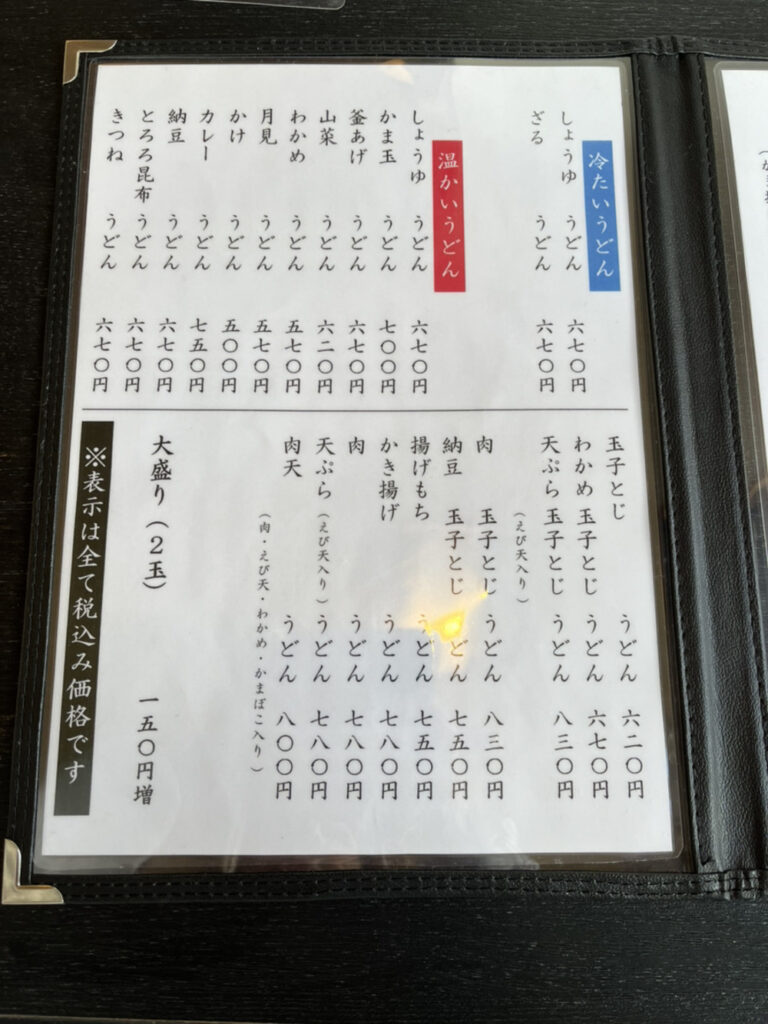 冷たいうどん
しょうゆ うどん 六七〇円
ざる うどん 六七〇円
温かいうどん
しょうゆ うどん 六七〇円
かま玉 うどん 七〇〇円
釜あげ うどん 六七〇円
山菜 うどん 六二〇円
わかめ うどん 五七〇円
月見 うどん 五七〇円
かけ うどん 五〇〇円
カレー うどん 七五〇円
納豆 うどん 六七〇円
とろろ昆布 うどん 六七〇円
きつね うどん 六七〇円
玉子とじ うどん 六二〇円
わかめ 玉子とじ うどん 六七〇円
天ぷら 玉子とじ うどん 八三〇円
（えび天入り）
肉 玉子とじ うどん 八三〇円
納豆 玉子とじ うどん 七五〇円
揚げもち うどん 七五〇円
かき揚げ うどん 七八〇円
肉 うどん 七八〇円
天ぷら（えび天入り） うどん 七八〇円
肉天 うどん 八〇〇円
（肉・えび天・わかめ・かまぼこ入り）
大盛り（2玉） 一五〇円増
※表示は全て税込み価格です